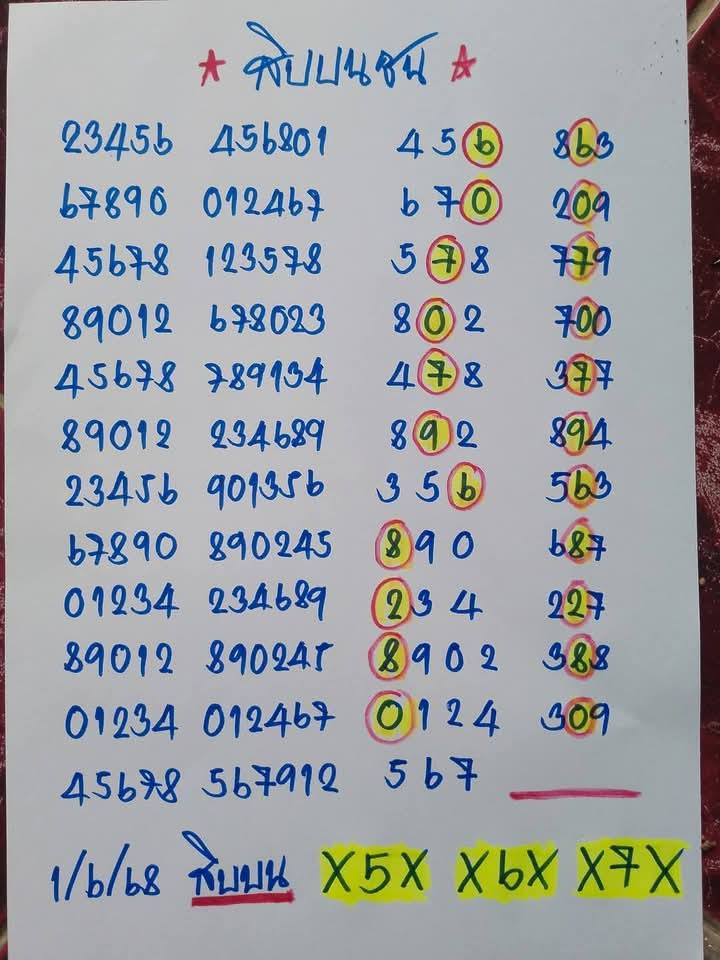 ★ สิบบนชน ★
23456 456801 456 863
67890 012467 670 209
45678 123578 578 779
89012 678023 802 700
45678 789134 478 377
89012 234689 892 894
23456 901356 356 563
67890 890245 890 687
01234 234689 234 227
89012 890245 8902 388
01234 012467 0124 309
45678 567912 567
1/6/68 สิบบน X5X X6X X7X